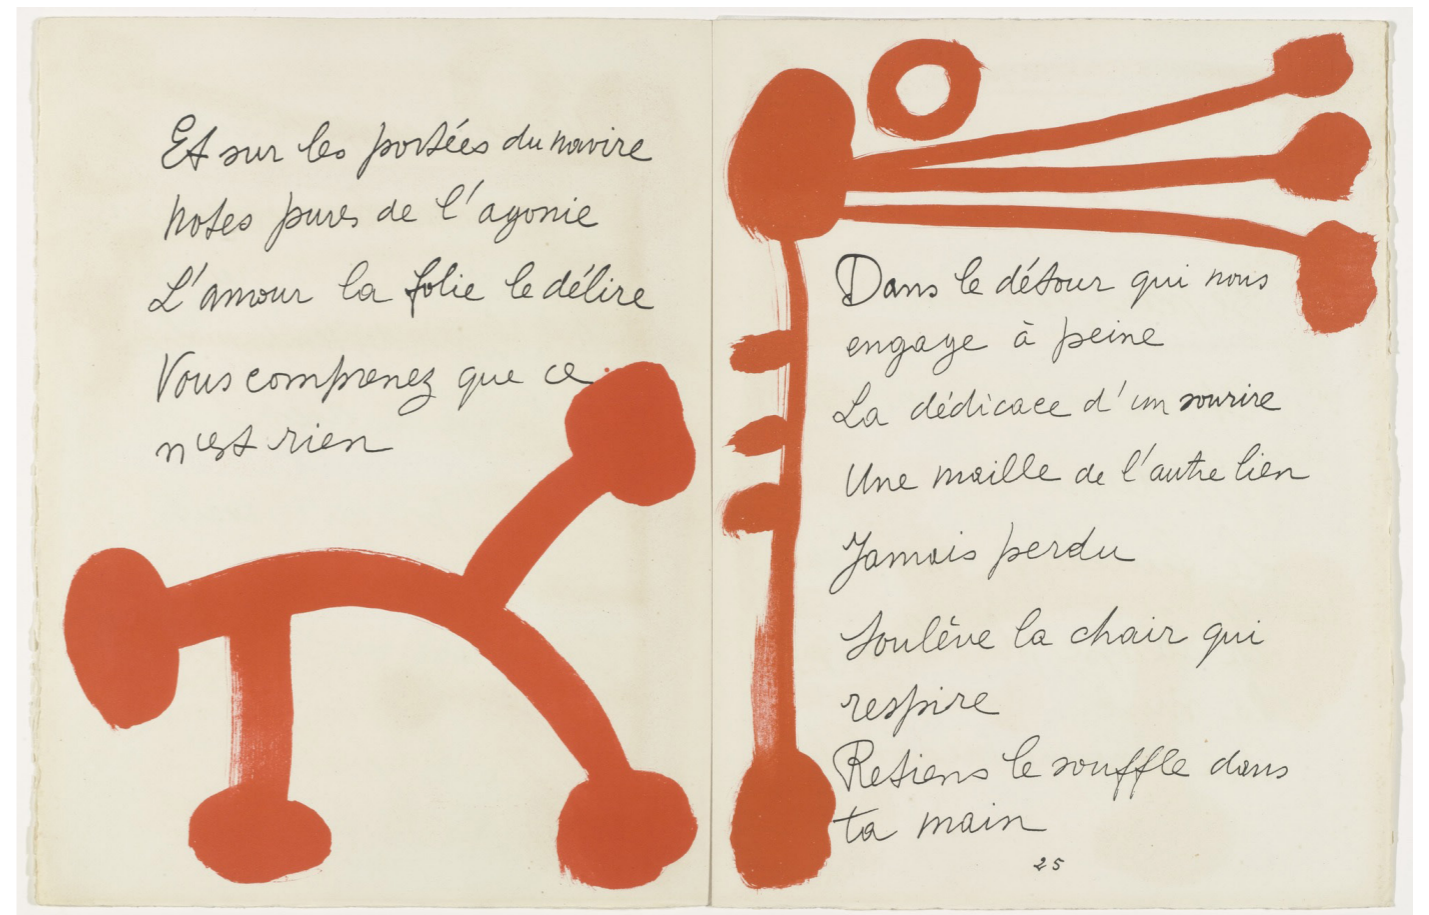 Et sur les portées du navire
Notes pures de l'agonie
L'amour la folie le délire
Vous comprenez que ce
n'est rien
Dans le détour qui nous
engage à peine
La dédicace d'un sourire
Une maille de l'autre lien
Jamais perdu
Soulève la chair qui
respire
Retiens le souffle dans
ta main
25